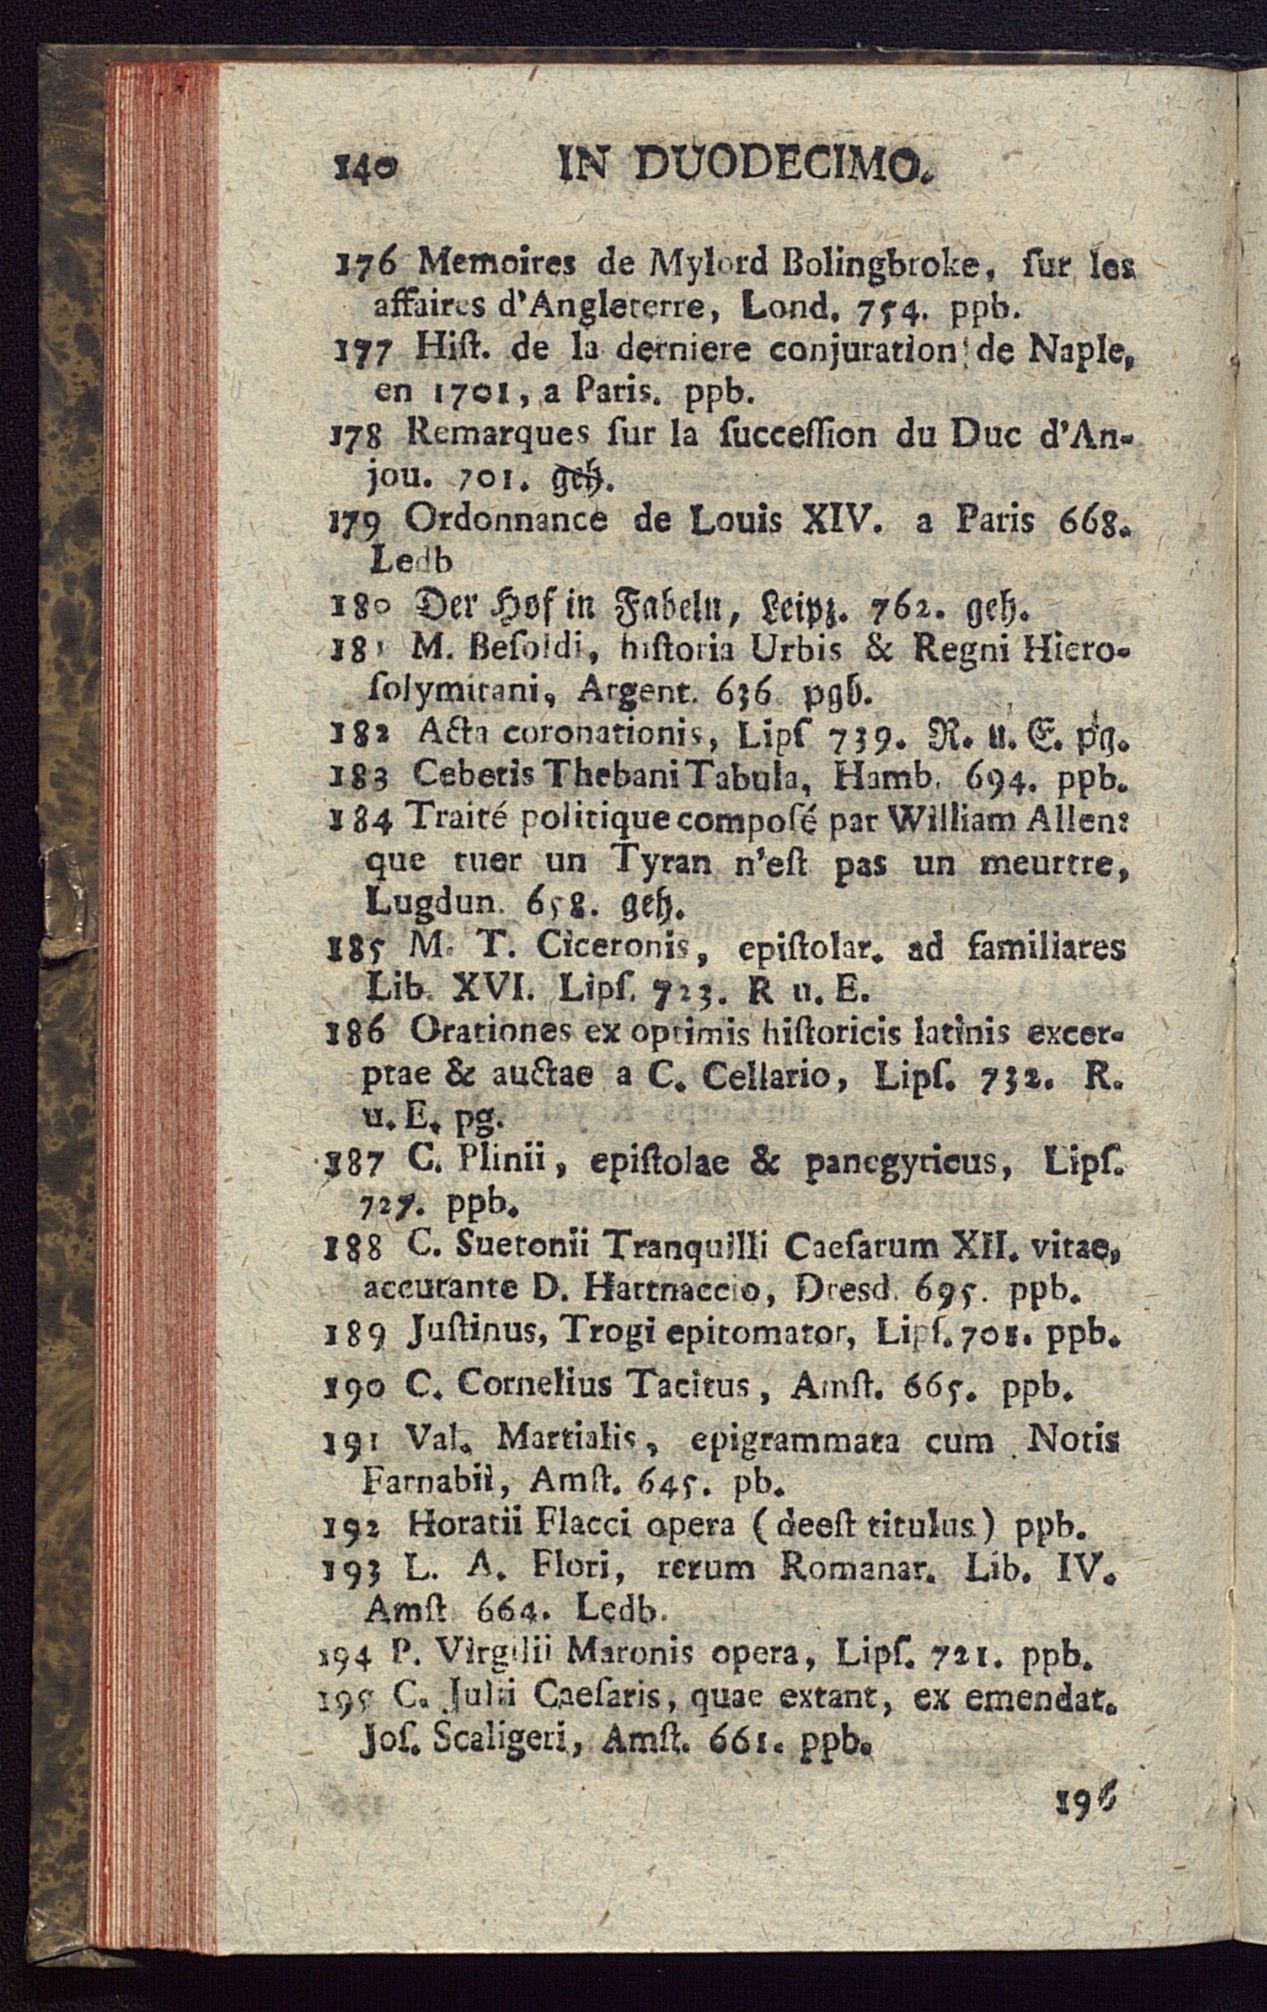 140 IN DUODECIMO.
176 Memoires de Mylord Bolingbroke, ſur les
affaires d'Angleterre, Lond. 754. ppb.
177 Hiſt. de la derniere conjuration de Naple,
en 1701, a Paris. ppb.
178 Remarques ſur la ſucceſſion du Duc d'An-
jou. 701. geh.
179 Ordonnance de Louis XIV. a Paris 668.
Ledb
180 Der Hof in Fabeln, Leipz. 762. geh.
181 M. Beſoldi, hiſtoria Urbis & Regni Hiero-
ſolymitani, Argent. 636 pgb.
182 Acta coronationis, Lipſ 739. R. u. E. pg.
183 Cebetis Thebani Tabula, Hamb. 694. ppb.
184 Traité politique compoſé par William Allen:
que tuer un Tyran n'eſt pas un meurtre,
Lugdun. 658. geh.
185 M. T. Ciceronis, epiſtolar. ad familiares
Lib. XVI. Lipſ. 723. R u. E.
186 Orationes ex optimis hiſtoricis latinis excer-
ptae & auctae a C. Cellario, Lipſ. 732. R.
u. E. pg.
187 C. Plinii, epiſtolae & panegyricus, Lipſ.
727. ppb.
188 C. Suetonii Tranquilli Caeſarum XII. vitae,
accurante D. Hartnaccio, Dresd. 695. ppb.
189 Juſtinus, Trogi epitomator, Lipſ. 701. ppb.
190 C. Cornelius Tacitus, Amſt. 665. ppb.
191 Val. Martialis, epigrammata cum Notis
Farnabii, Amſt. 645. pb.
192 Horatii Flacci opera (deeſt titulus) ppb.
193 L. A. Flori, rerum Romanar. Lib. IV.
Amſt 664. Ledb.
194 P. Virgilii Maronis opera, Lipſ. 721. ppb.
195 C. Julii Caeſaris, quae extant, ex emendat.
Joſ. Scaligeri, Amſt. 661. ppb.
196